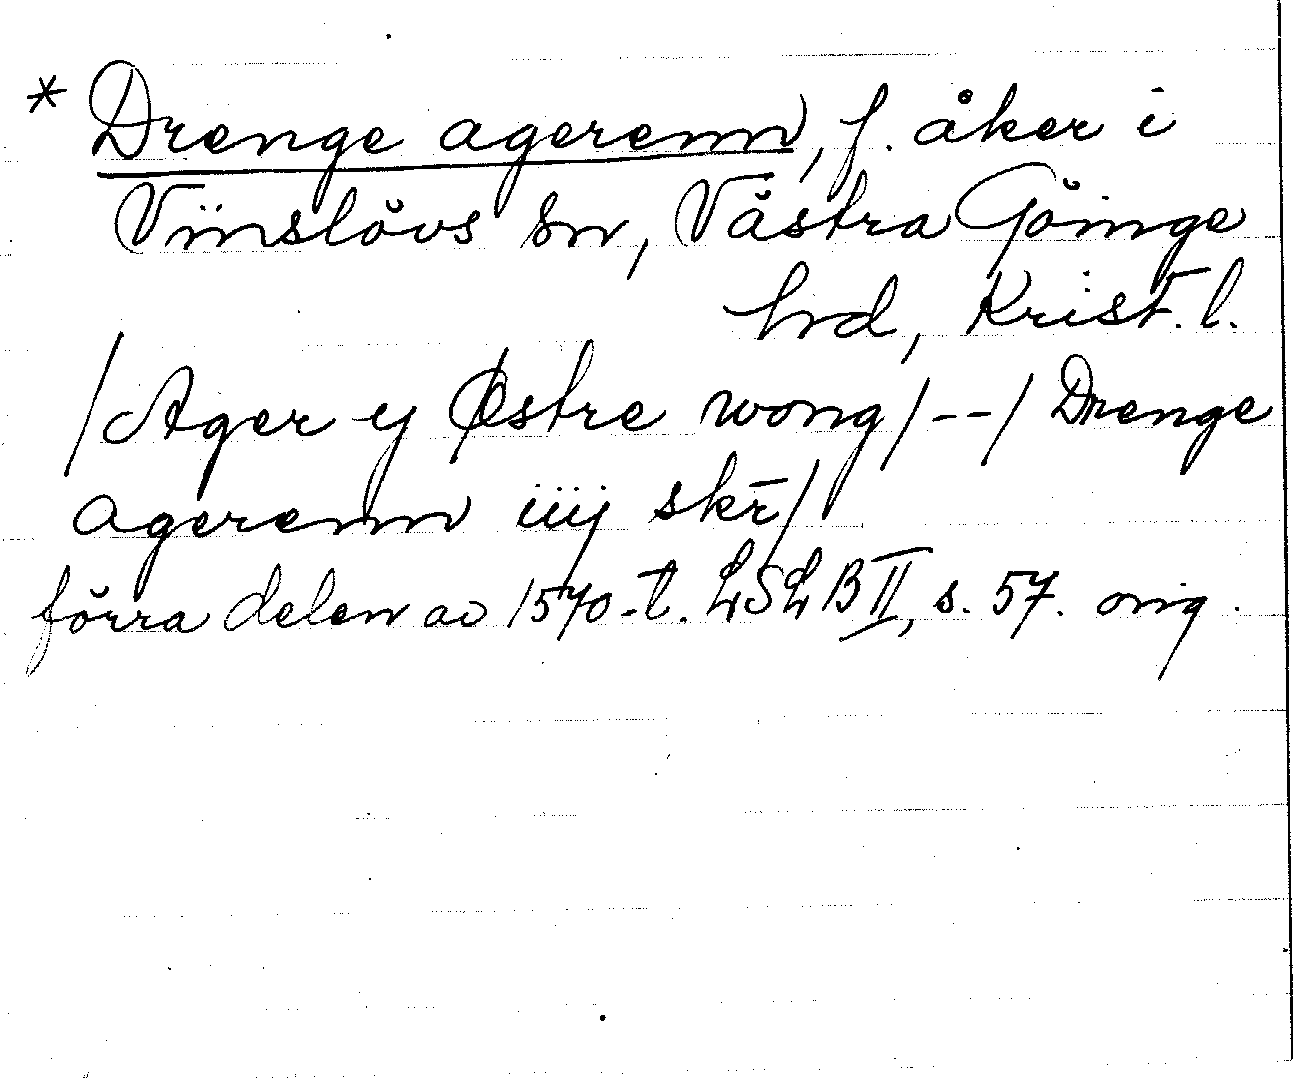 * Drenge agerenn, f. åker i
Vinslövs sn, Västra Göinge
hrd, Krist. l.
/Ager y Østre wong/--/Drenge
agerenn iiij skr̄/
förra delen av 1570-t. LSLB II, s. 57. orig.